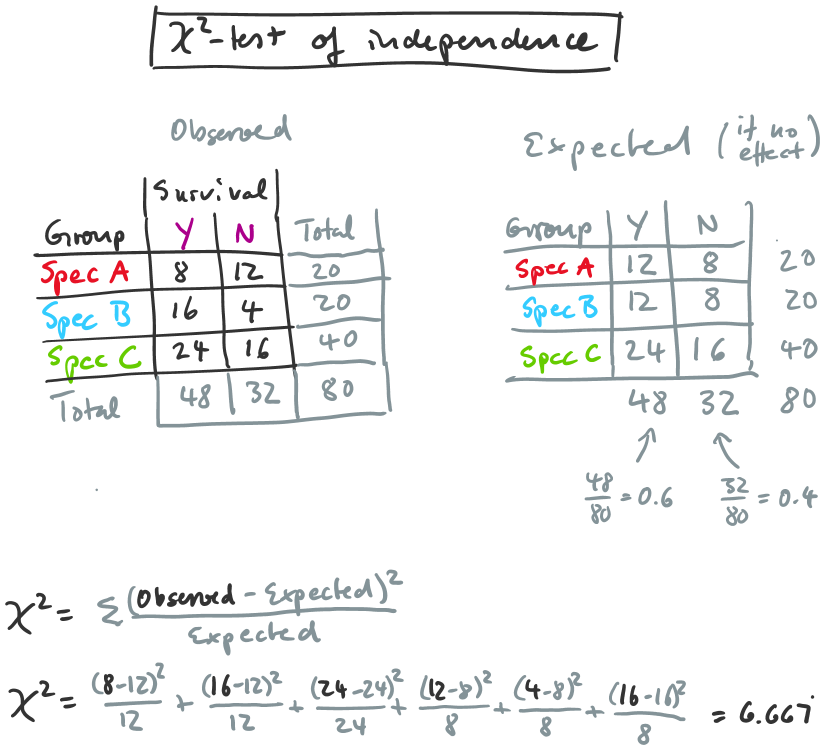 χ²-test of independence
Observed
Expected (if no effect)
Survival
Group Y N Total
Spec A 8 12 20
Spec B 16 4 20
Spec C 24 16 40
Total 48 32 80
Group Y N
Spec A 12 8 20
Spec B 12 8 20
Spec C 24 16 40
48 32 80
48/80 = 0.6 32/80 = 0.4
χ² = Σ (Observed - Expected)² / Expected
χ² = (8-12)²/12 + (16-12)²/12 + (24-24)²/24 + (12-8)²/8 + (4-8)²/8 + (16-16)²/8 = 6.667